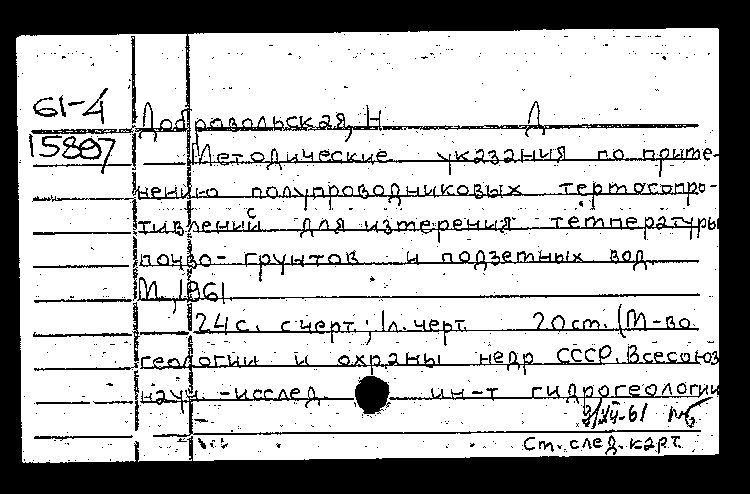 61-4
15807
Добровольская, Н Д
Методические указания по приме-
нению полупроводниковых термосопро-
тивлений для измерения температуры
почво-грунтов и подземных вод.
М., 1961
24 с. с черт.; 1 л. черт. 20 см. (М-во
геологии и охраны недр СССР. Всесоюз
науч.-исслед. ин-т гидрогеологии
Ст. след. карт.